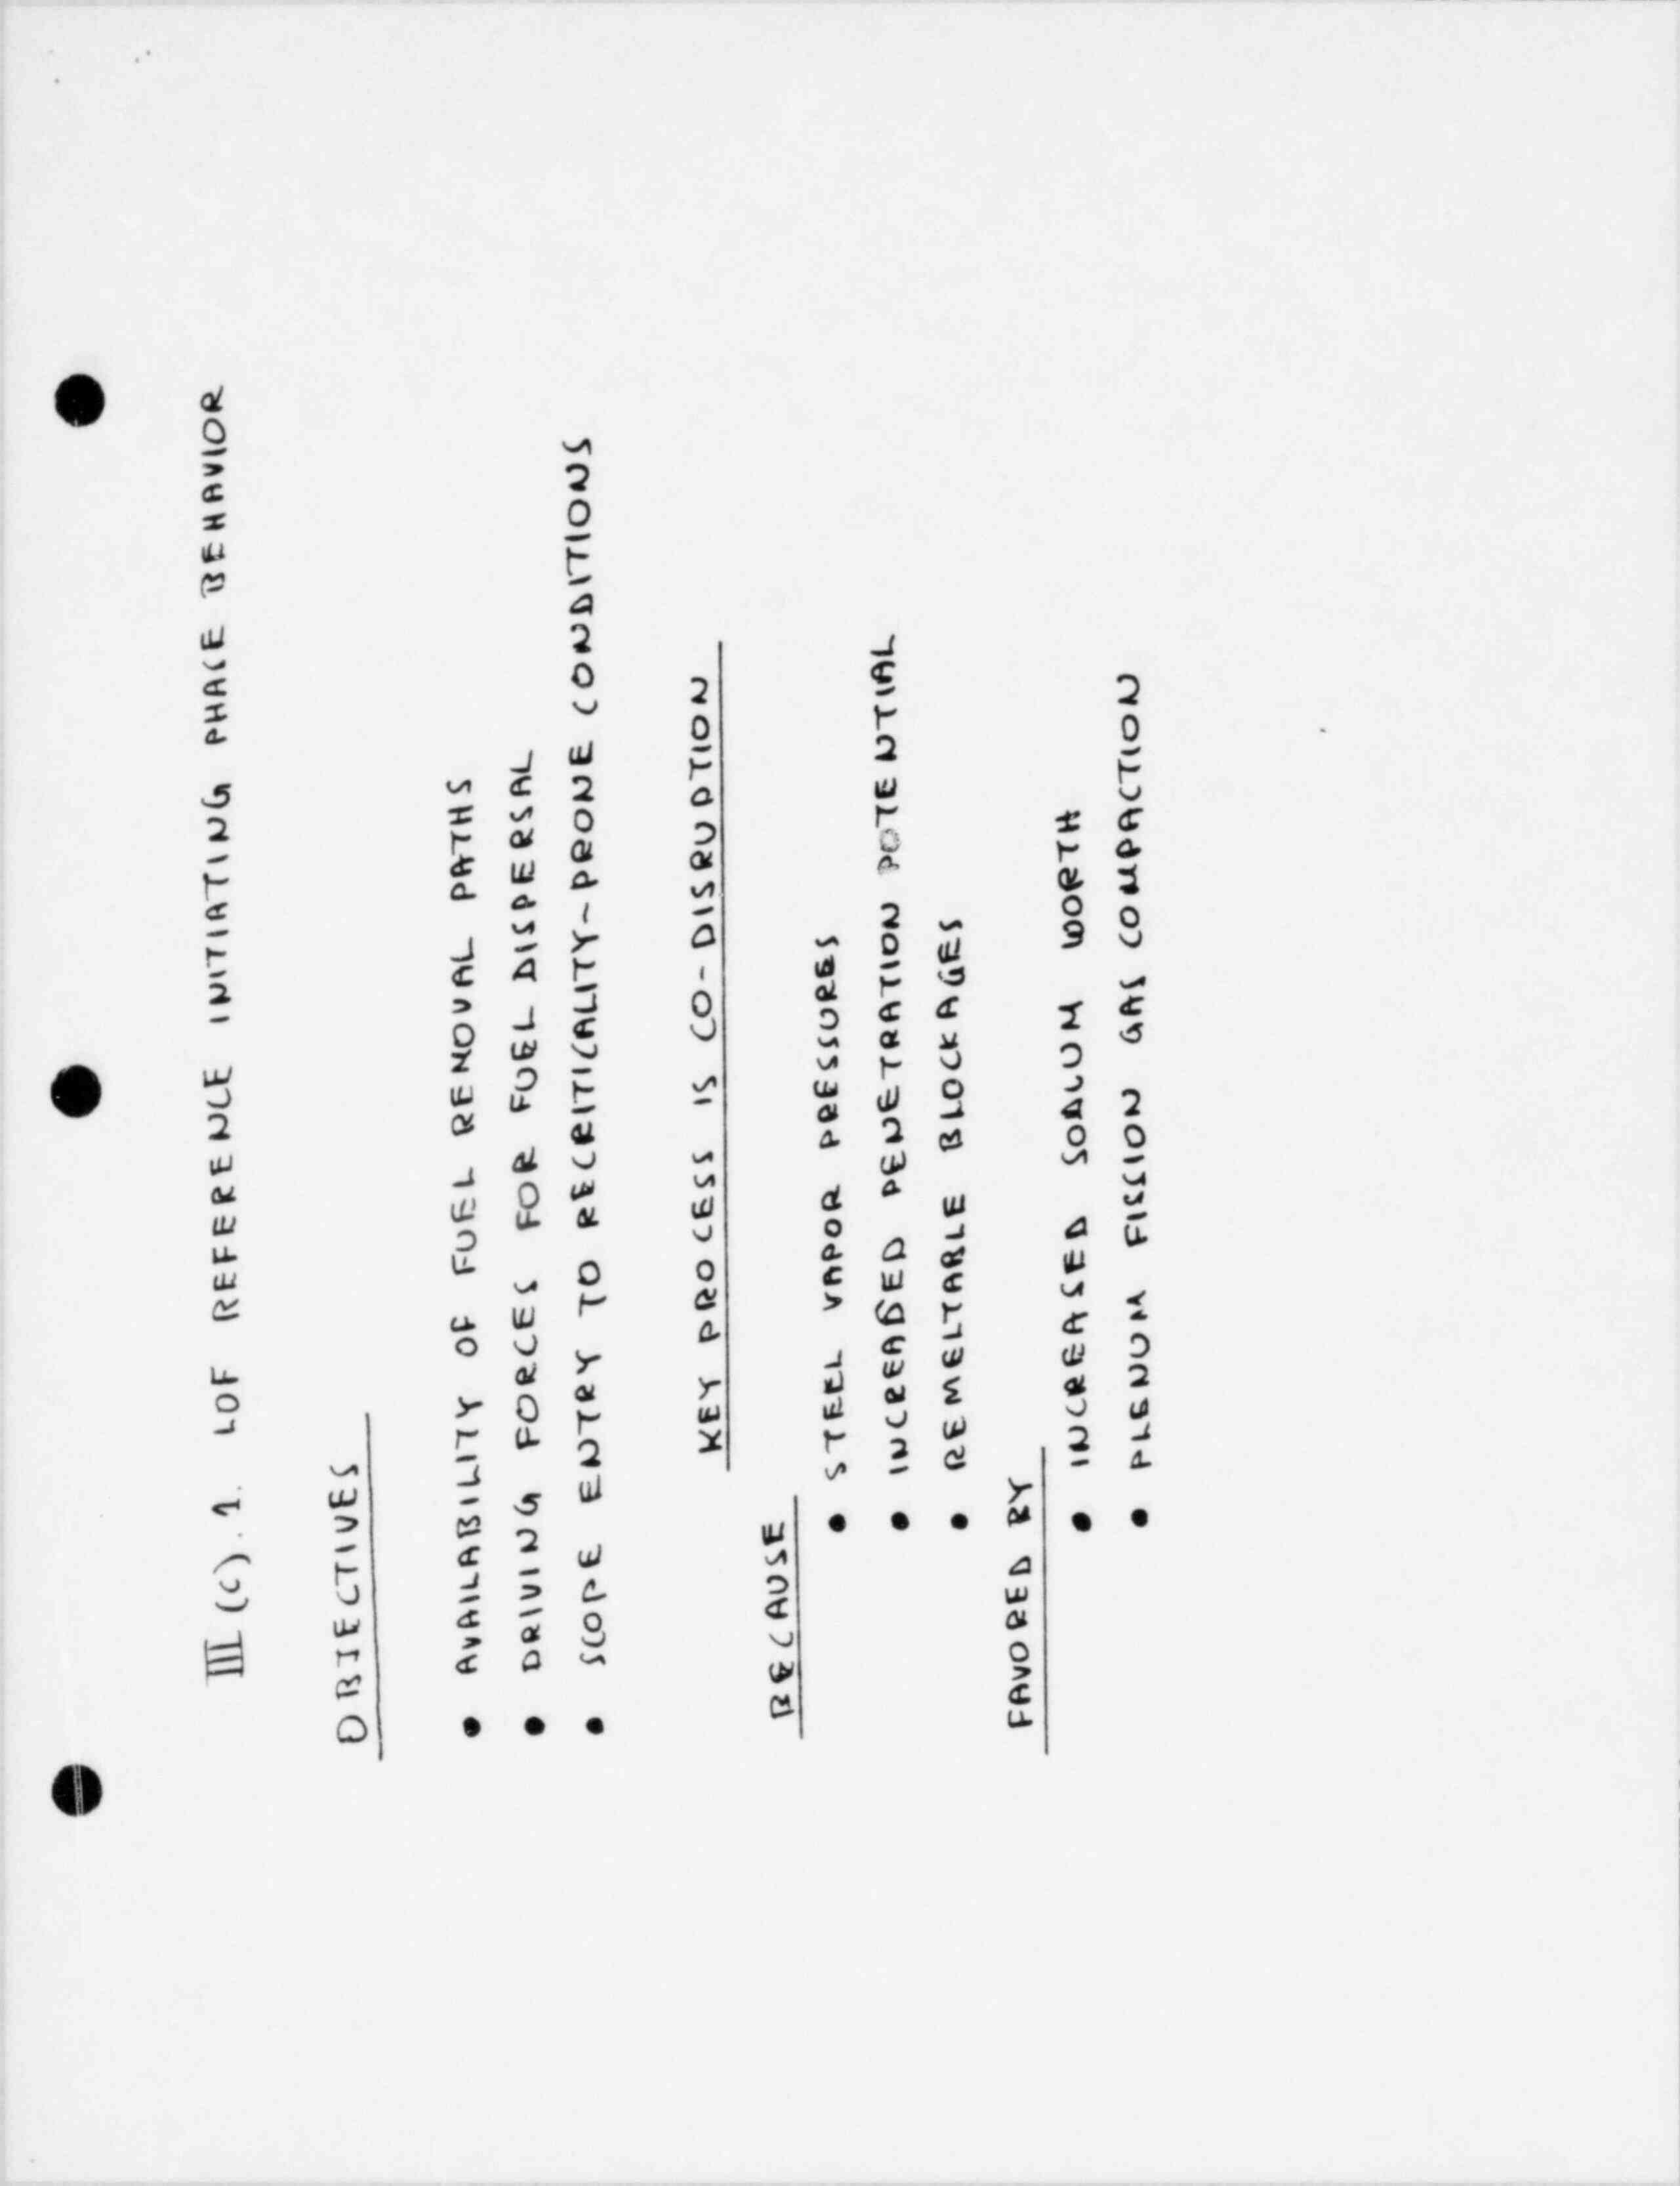 III (C). 1. LOF REFERENCE INITIATING PHASE BEHAVIOR
OBJECTIVES
• AVAILABILITY OF FUEL REMOVAL PATHS
• DRIVING FORCES FOR FUEL DISPERSAL
• SCOPE ENTRY TO RECRITICALITY-PRONE CONDITIONS
KEY PROCESS IS CO-DISRUPTION
BECAUSE
• STEEL VAPOR PRESSURES
• INCREASED PENETRATION POTENTIAL
• REMELTABLE BLOCKAGES
FAVORED BY
• INCREASED SODIUM WORTH
• PLENUM FISSION GAS COMPACTION